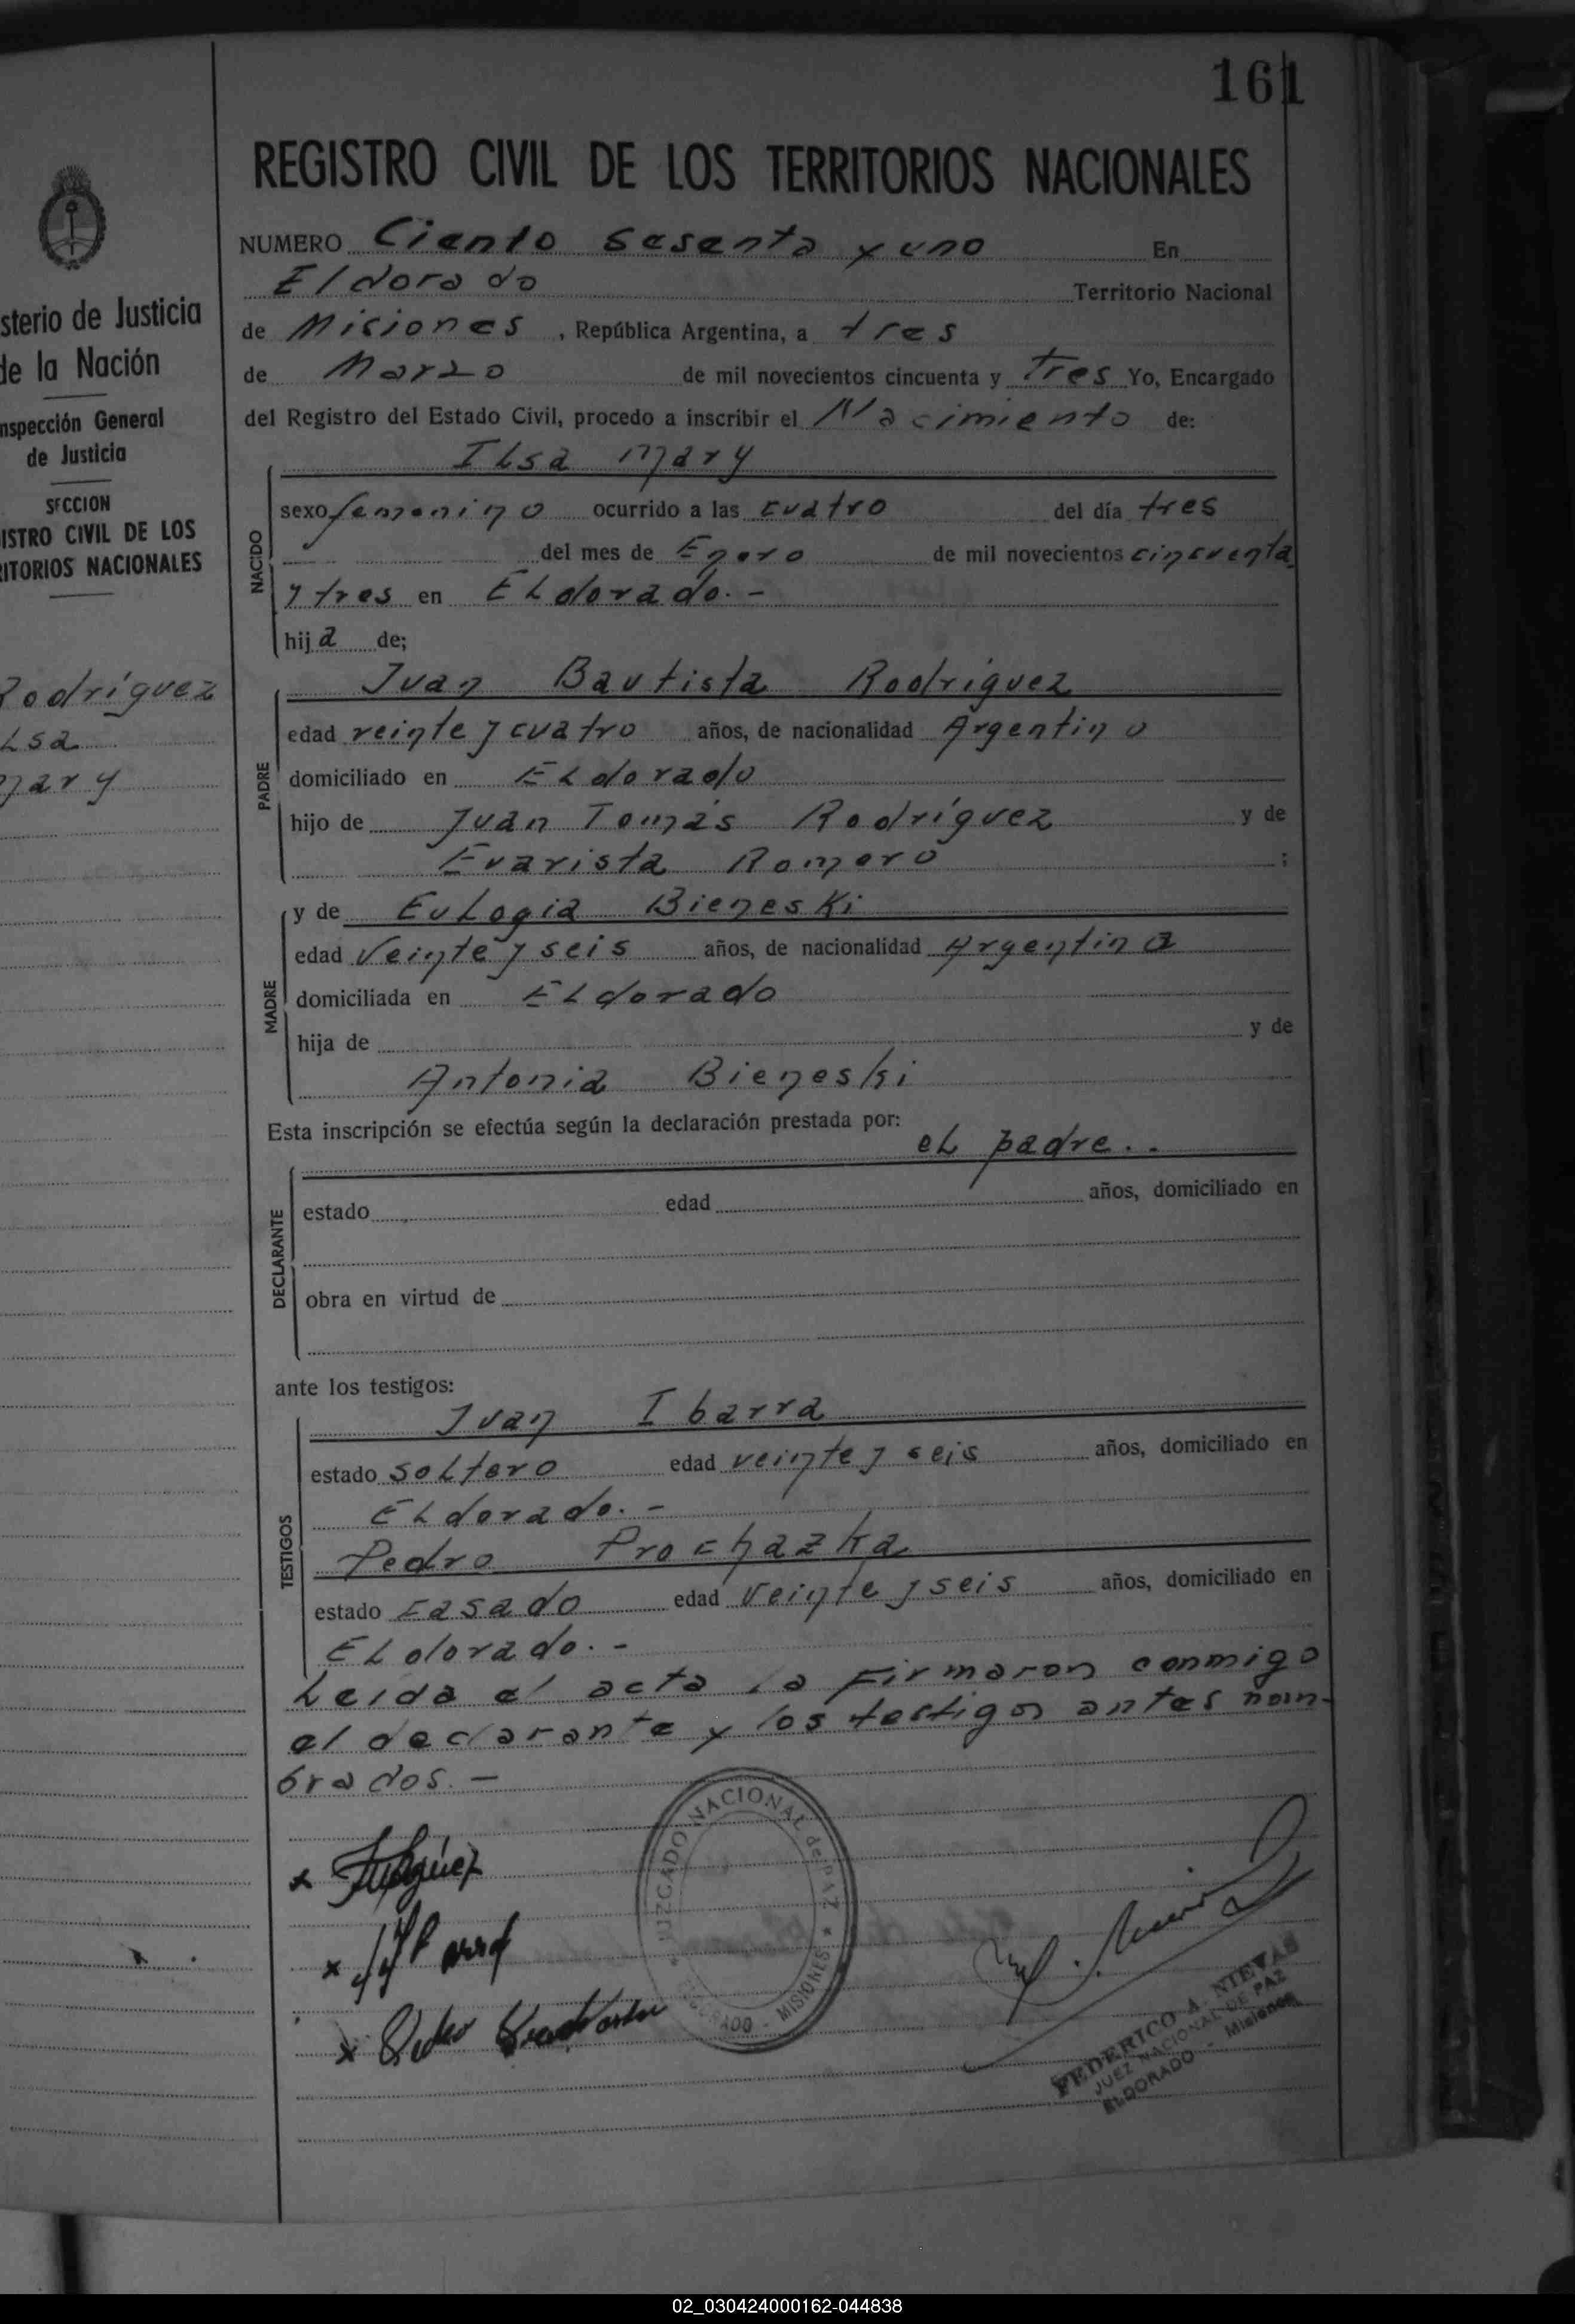 161
REGISTRO CIVIL DE LOS TERRITORIOS NACIONALES
NUMERO Ciento sesenta y uno En
Eldorado Territorio Nacional
de Misiones, República Argentina, a tres
de Marzo de mil novecientos cincuenta y tres Yo, Encargado
del Registro del Estado Civil, procedo a inscribir el Nacimiento de:
NACIDO
ILsa Mary
sexo femenino ocurrido a las cuatro del día tres
del mes de Enero de mil novecientos cincuenta
y tres en ELdorado.-
hija de;
PADRE
Juan Bautista Rodríguez
edad veinte y cuatro años, de nacionalidad Argentino
domiciliado en ELdorado
hijo de Juan Tomás Rodríguez y de
Evarista Romero ;
MADRE
y de EuLogia Bieneski
edad Veinte y seis años, de nacionalidad Argentina
domiciliada en ELdorado
hija de y de
Antonia Bieneski
Esta inscripción se efectúa según la declaración prestada por:
eL padre..
DECLARANTE
estado edad años, domiciliado en
obra en virtud de
ante los testigos:
TESTIGOS
Juan Ibarra
estado soLtero edad veinte y seis años, domiciliado en
ELdorado.-
Pedro Prochazka
estado casado edad Veinte y seis años, domiciliado en
ELdorado.-
Leida el acta la Firmaron conmigo
el declarante y los testigos antes nom-
brados.-
JUZGADO NACIONAL de PAZ
ELDORADO - MISIONES
FEDERICO A. NIEVAS
JUEZ NACIONAL DE PAZ
ELDORADO - Misiones
sterio de Justicia
de la Nación
nspección General
de Justicia
SECCION
ISTRO CIVIL DE LOS
RITORIOS NACIONALES
Rodríguez
Lsa
Mary
02_030424000162-044838